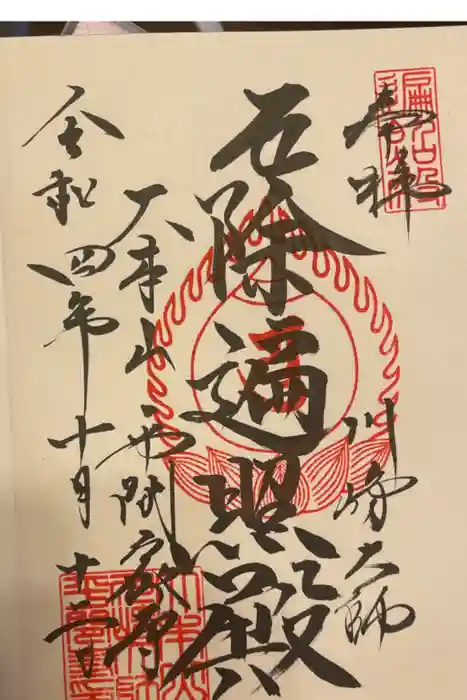 奉拝
川崎大師
厄除遍照殿
大本山 平間寺
令和四年十月十二日